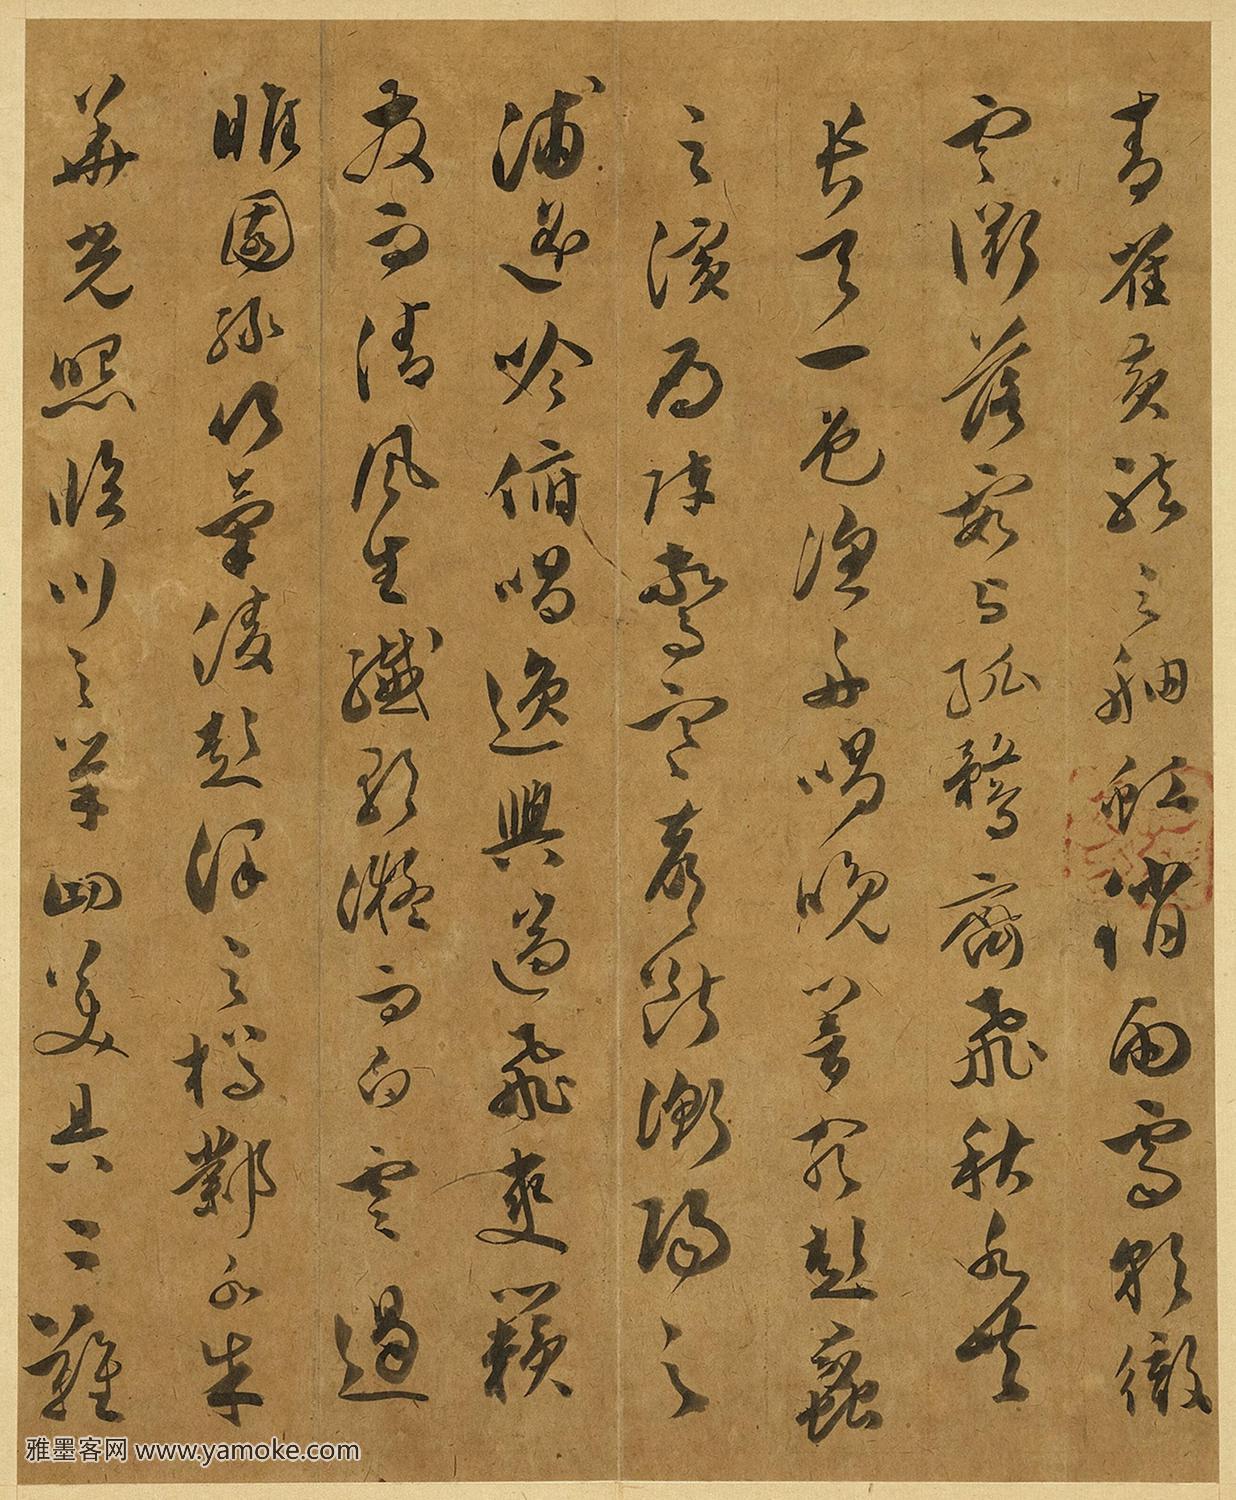 青雀黄龍之舳虹消雨霽彩徹
雲衢落霞与孤鶩齊飛秋水共
長天一色漁舟唱晚響窮彭蠡
之濱雁陣驚寒聲斷衡陽之
浦遥吟俯唱逸興遄飛爽籟
發而清風生纖歌凝而白雲遏
睢園緑竹氣凌彭澤之樽鄴水朱
華光照臨川之筆四美具二難
雅墨客网 www.yamoke.com